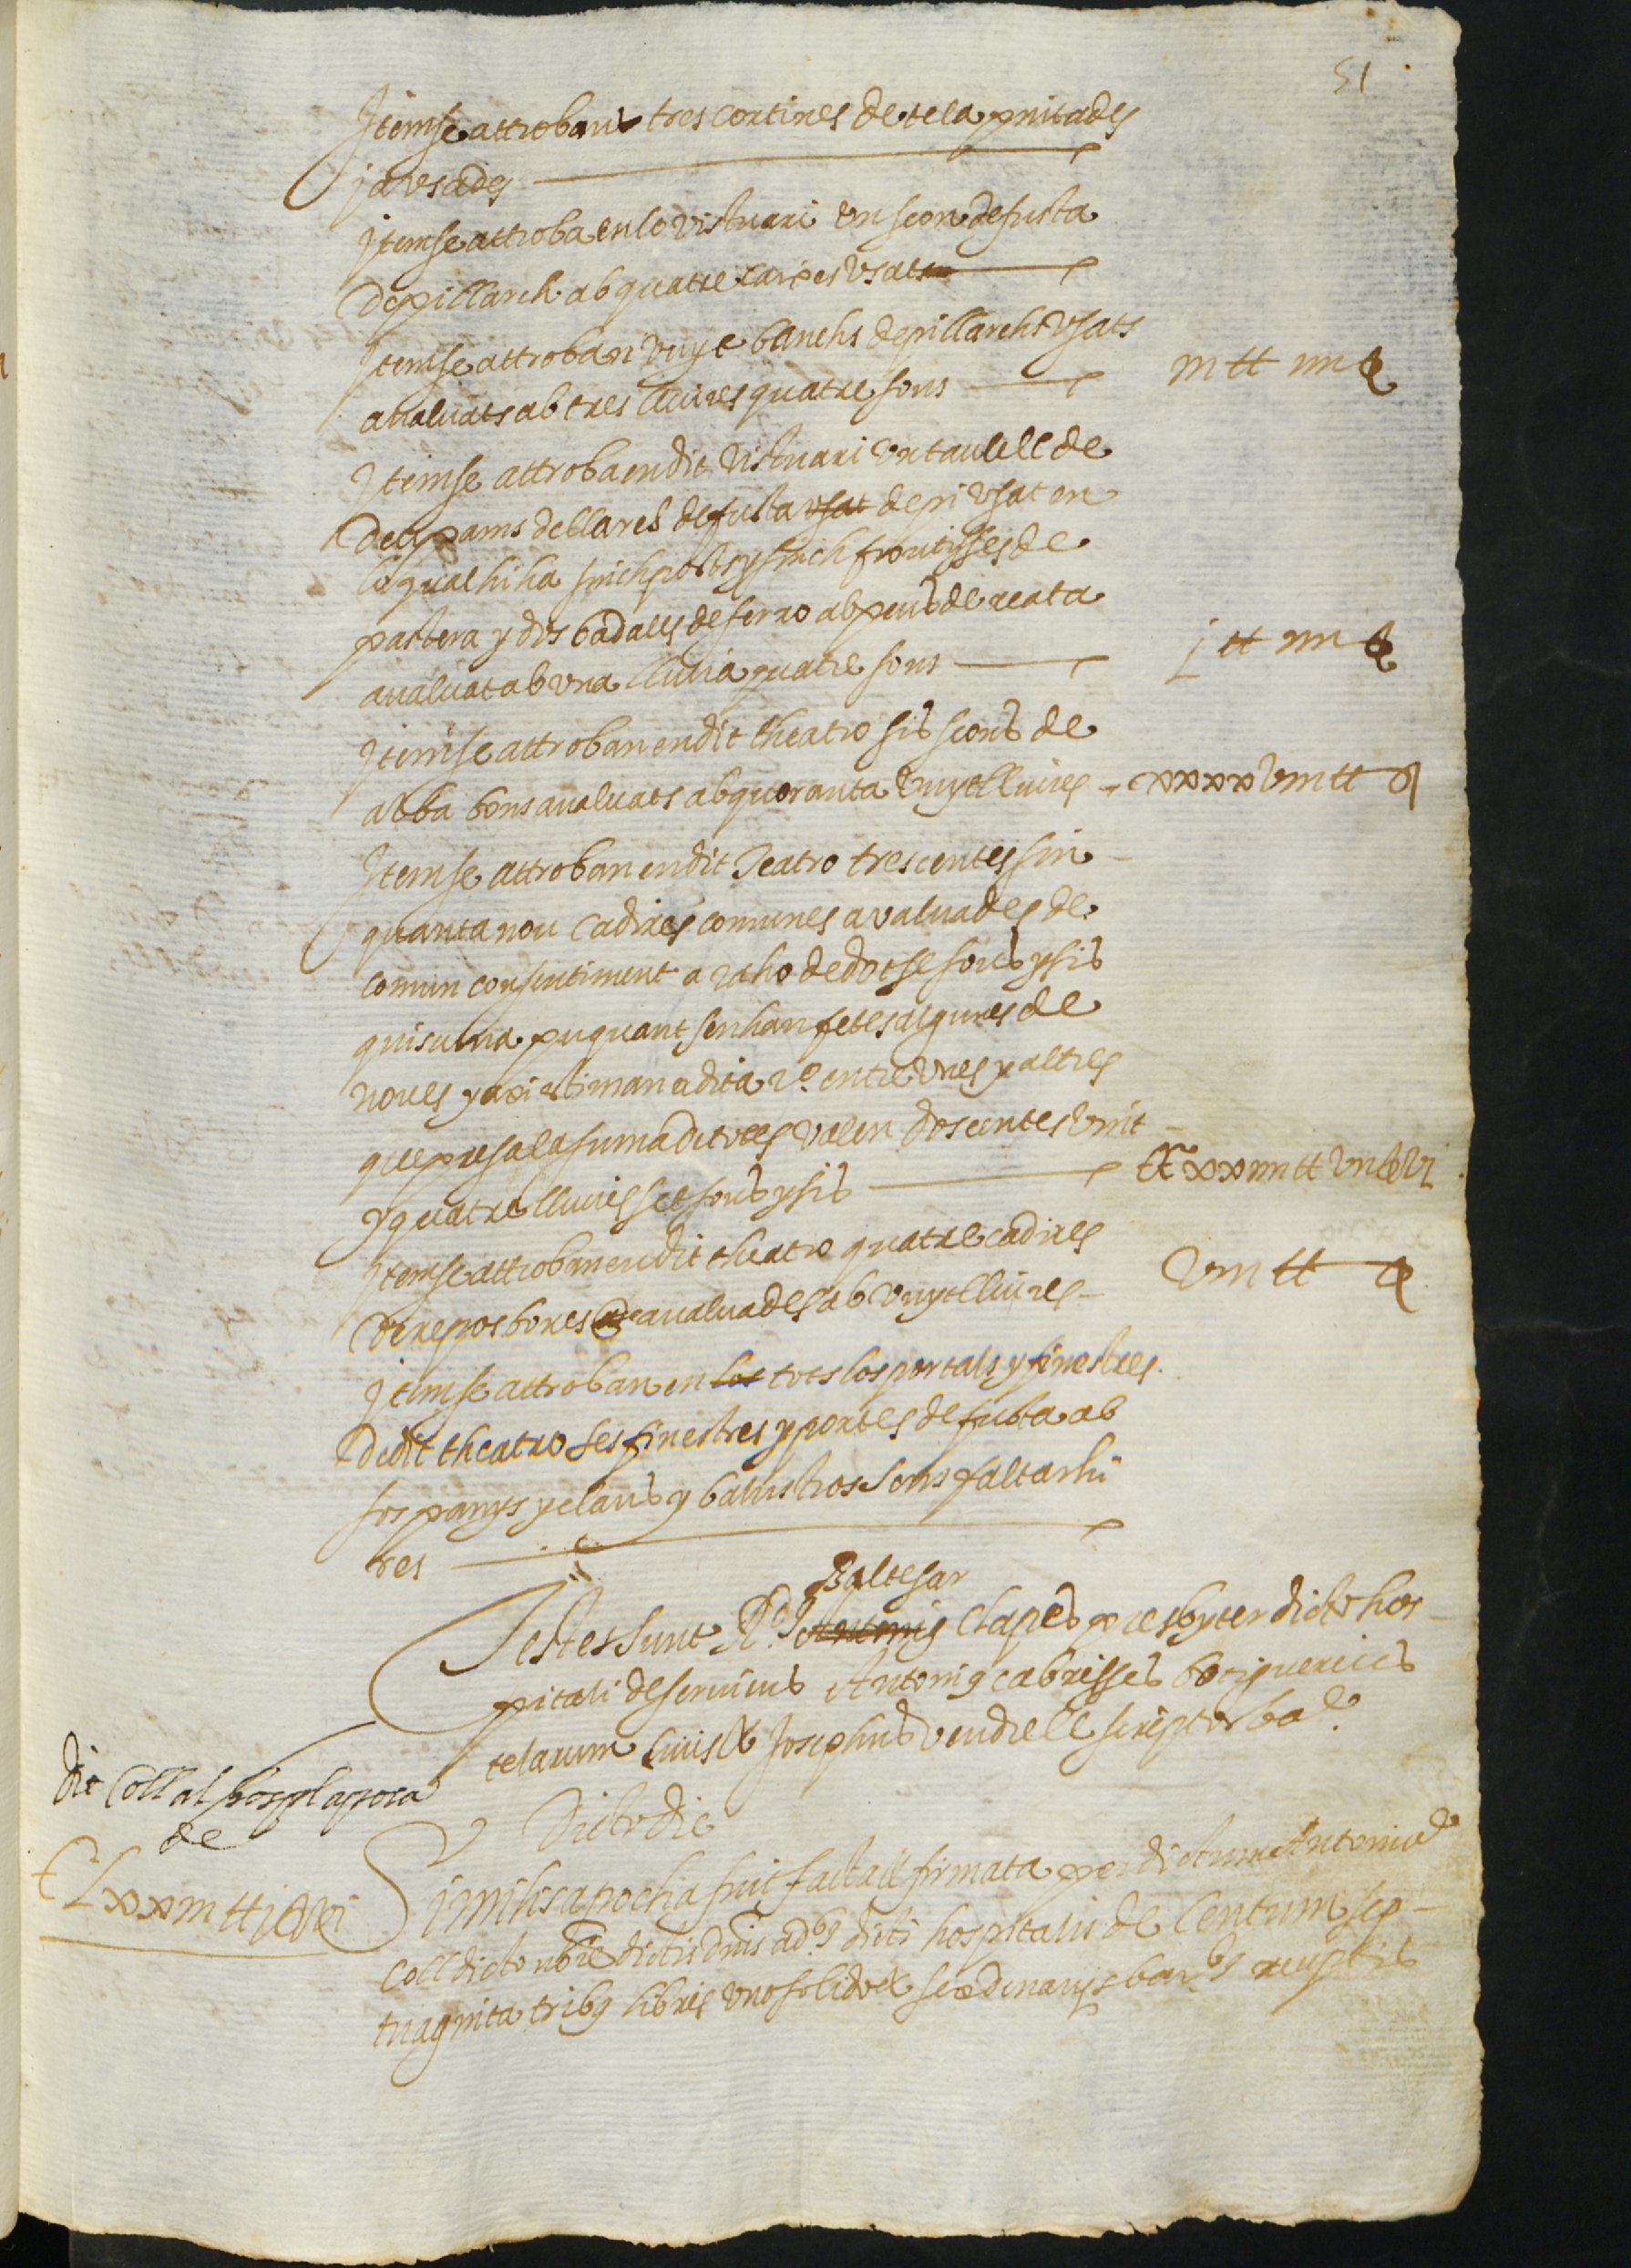 51
Item se attroban tres cortines de tela pintades
ja usades
Item se attroba en lo vistuari un scon de fusta
de pi llarch ab quatre caixes usat
Item se attroban vuyt banchs de pi llarchs usats
avaluats ab tres lliures quatre sous iii tt iiii ẞ
Item se attroba en dit vistuari un taulell de
deu pams de llarch de fusta usat de pi usat en
lo qual hi ha sinch posts y sinch frontisses de
pastera y dos badalls de ferro ab peus de reata
avaluat ab una lliura quatre sous j tt iiii ẞ
Item se attroban en dit theatro sis scons de
alba bons avaluats ab quoranta vuyt lliures xxxxviii tt ẞ
Item se attroban en dit Teatro trescentes sin
quanta nou cadires comunes avaluades de
comun consentiment a raho de dotse sous y sis
quiscuna puquant sen han fetes algunes de
noves y axi estiman a dita rº entre unes y altres
que presa la suma de totes valen doscentes vint
y quatre lliures set sous y sis CCxxiiii tt vii ẞ vi
Item se attroban en dit theatro quatre cadires
de repos bones avaluades ab vuyt lliures viii tt ẞ
Item se attroban en los tots los portals y finestres
de dit theatro ses finestres y portes de fusta ab
sos panys y claus y balustros sens faltarhi
res
Baltesar
Testes sunt Rdus Antonius Clapes presbyter dicto hos
pitali deserviens Antonius Cabrisses botiguerius
telarum civis et Josephus Vendrell scriptor bae
Dicto die
dit Coll al hospl apoca
de
CLxxiii tt i ẞ vi
Similis apocha fuit facta et firmata per dictum Antonium
Coll dicto noie dictis dnis adbus dicti hospitalis de Centum sep
tuaginta tribus libris uno solido et sex denarijs barbus receptis